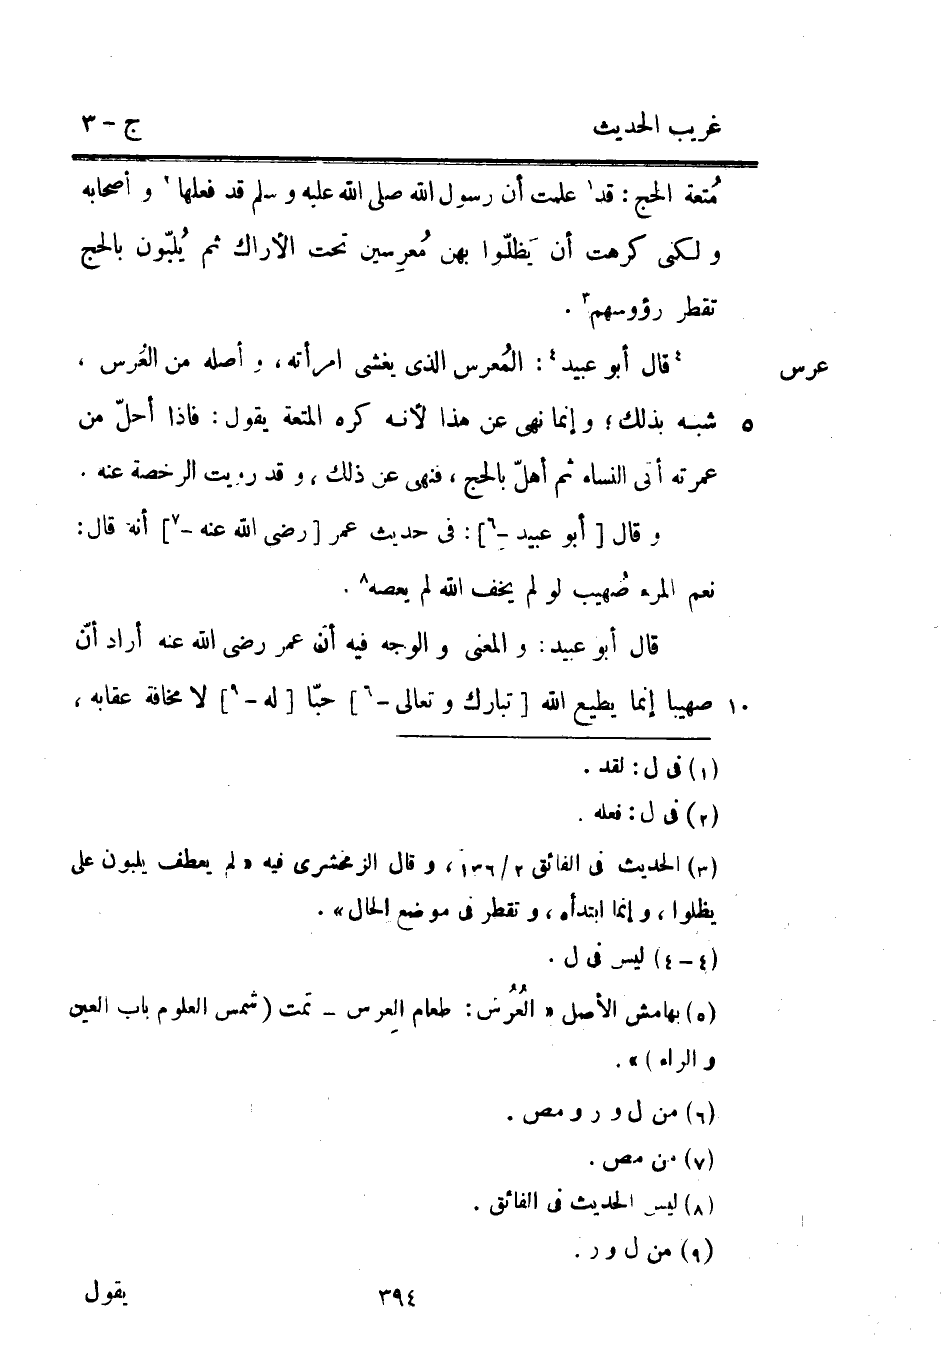 غريب الحديث ج - ٣
مُتعة الحج : قد١ علمت أن رسول الله صلى الله عليه و سلم قد فعلها٢ و أصحابه
و لكنى كرهت أن يَظلّوا بهن مُعرِسين تحت الأراك ثم يُلبّون بالحج
تقطر رؤوسهم٣ .
عرس ٤قال أبو عبيد٤ : المُعرس الذى يغشى امرأته، و أصله من العُرس ،
٥ شبه بذلك؛ و إنما نهى عن هذا لأنه كره المتعة يقول : فاذا أحلّ من
عمرته أتى النساء ثم أهلّ بالحج ، فنهى عن ذلك ، و قد رويت الرخصة عنه .
و قال [ أبو عبيد -٦] : فى حديث عمر [ رضى الله عنه -٧] أنه قال :
نعم المرء صُهيب لو لم يخف الله لم يعصه٨ .
قال أبو عبيد : و المعنى و الوجه فيه أن عمر رضى الله عنه أراد أنّ
١٠ صهيبا إنما يطيع الله [ تبارك و تعالى -٦] حبّا [ له -٩] لا مخافة عقابه ،
(١) فى ل : لقد .
(٢) فى ل : فعله .
(٣) الحديث فى الفائق ٢/ ١٣٦، و قال الزمخشرى فيه « لم يعطف يلبون على
يظلوا ، و إنما ابتدأه ، و تقطر فى موضع الحال» .
(٤ - ٤) ليس فى ل .
(٥) بهامش الأصل « العُرُس : طعام العِرس - تمت (شمس العلوم باب العين
و الراء )» .
(٦) من ل و ر و مص .
(٧) من مص .
(٨) ليس الحديث فى الفائق .
(٩) من ل و ر .
٣٩٤ يقول